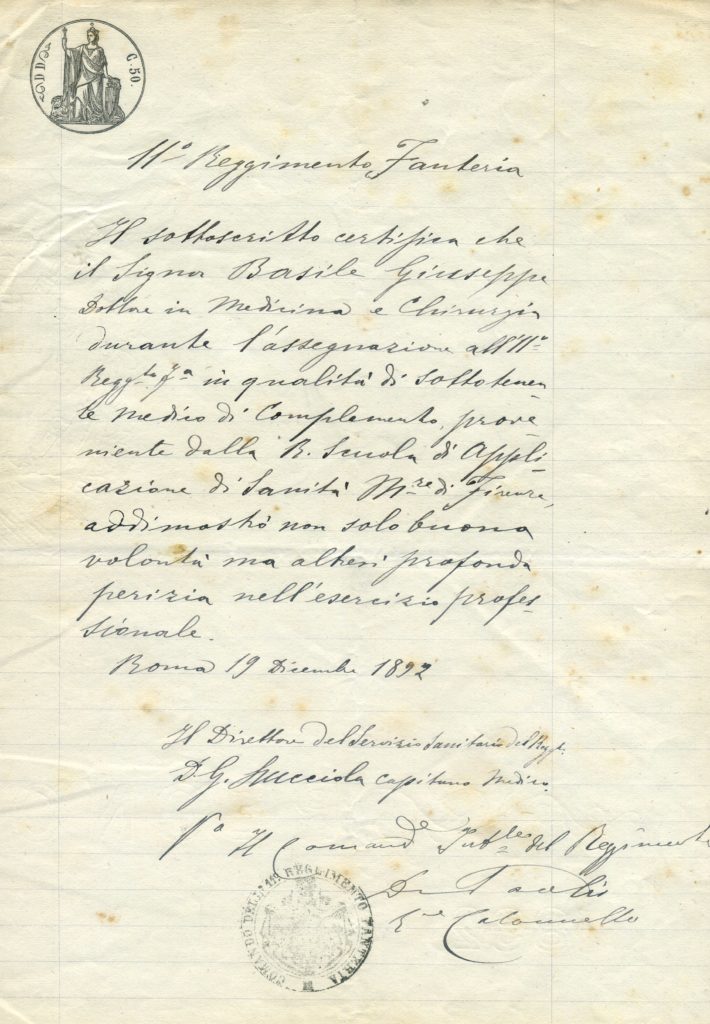 C. 50.
11º Reggimento Fanteria
Il sottoscritto certifica che
il Signor Basile Giuseppe
Dottore in Medicina e Chirurgia
durante l'assegnazione all'11º
Reggto Fa in qualità di Sottotenen
te medico di Complemento, prove
niente dalla R. Scuola di Appli
cazione di Sanità Mre di Firenze,
addimostrò non solo buona
volontà ma altresì profonda
perizia nell'esercizio profes-
sionale.
Roma 19 Dicembre 1892
Il Direttore del Servizio Sanitario del Reggt.
D. G. capitano Medico.
Il Comande del Reggimento
Colonnello
COMANDO DELL' 11º REGGIMENTO FANTERIA